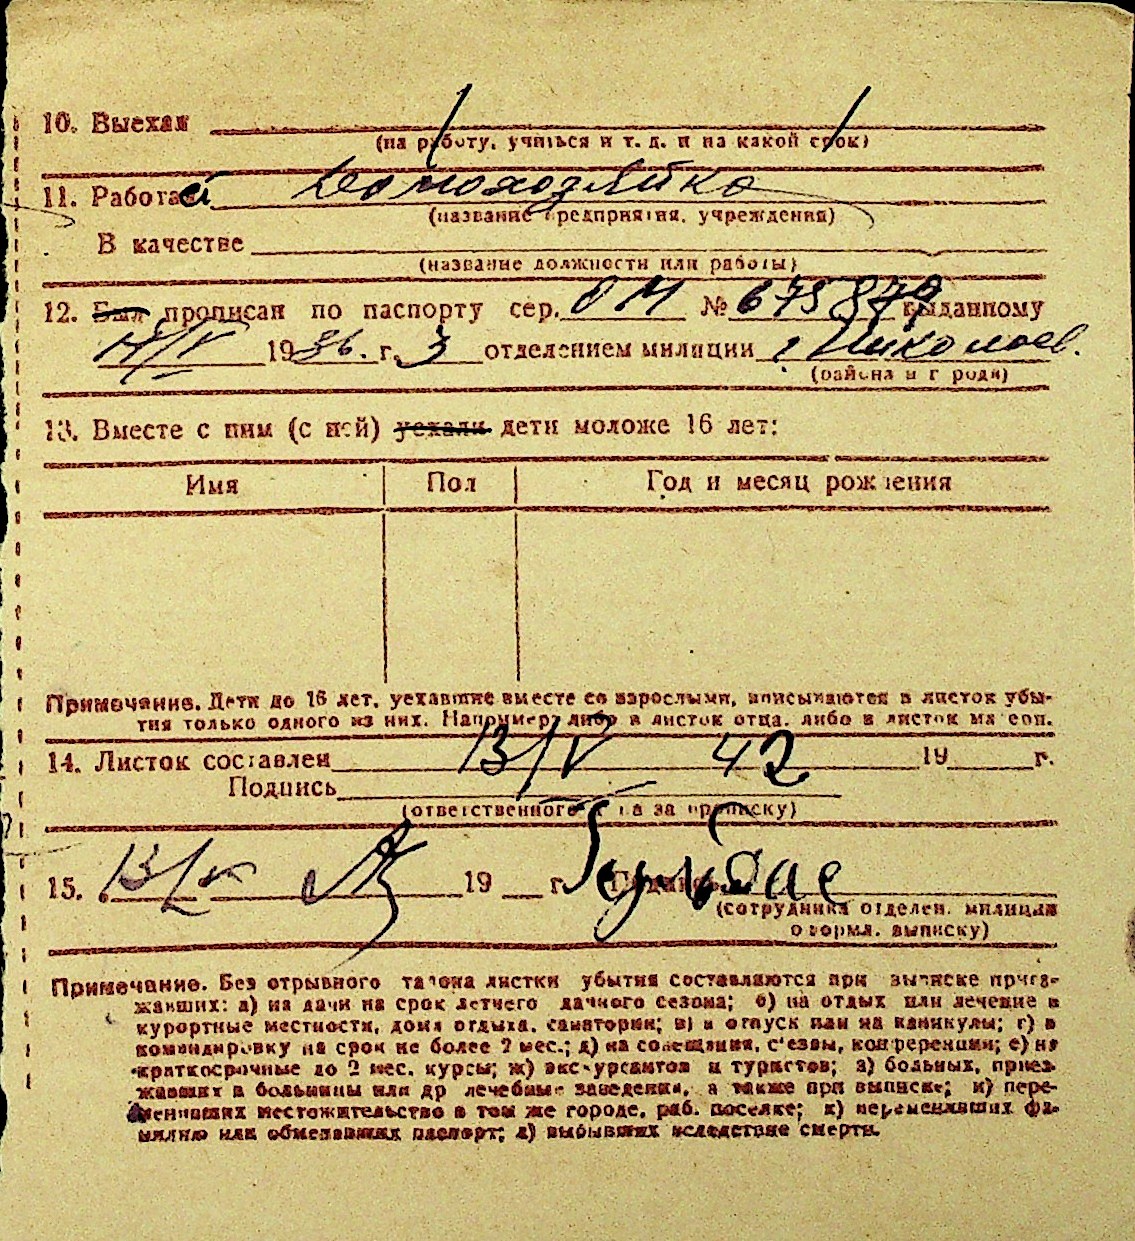 10. Выехал
(на работу, учиться и т. д. и на какой срок)
11. Работает Домохозяйка
(название предприятия, учреждения)
В качестве
(название должности или работы)
12. Был прописан по паспорту сер. ОМ № 675879 выданному
1936. г. 3 отделением милиции г Николаев.
(района и города)
13. Вместе с ним (с ней) уехали дети моложе 16 лет:
Имя Пол Год и месяц рождения
Примечание. Дети до 16 лет, уехавшие вместе со взрослыми, вписываются в листок убы-
тия только одного из них. Например, либо в листок отца, либо в листок матери.
14. Листок составлен 13/V 42 19 г.
Подпись
(ответственного лица за прописку)
15. 13/V 19 г. Подпись
(сотрудника отделен. милиции
оформл. выписку)
Примечание. Без отрывного талона листки убытия составляются при выписке приез-
жавших: а) на дачи на срок летнего дачного сезона; б) на отдых или лечение в
курортные местности, дома отдыха, санатории; в) в отпуск или на каникулы; г) в
командировку на срок не более 2 мес.; д) на совещания, с'езды, конференции; е) на
краткосрочные до 2 мес. курсы; ж) экскурсантов и туристов; з) больных, приез-
жавших в больницы или др лечебные заведения, а также при выписке; и) пере-
менивших местожительство в том же городе, раб. поселке; к) переменивших фа-
милию или обменявших паспорт; л) выбывших вследствие смерти.